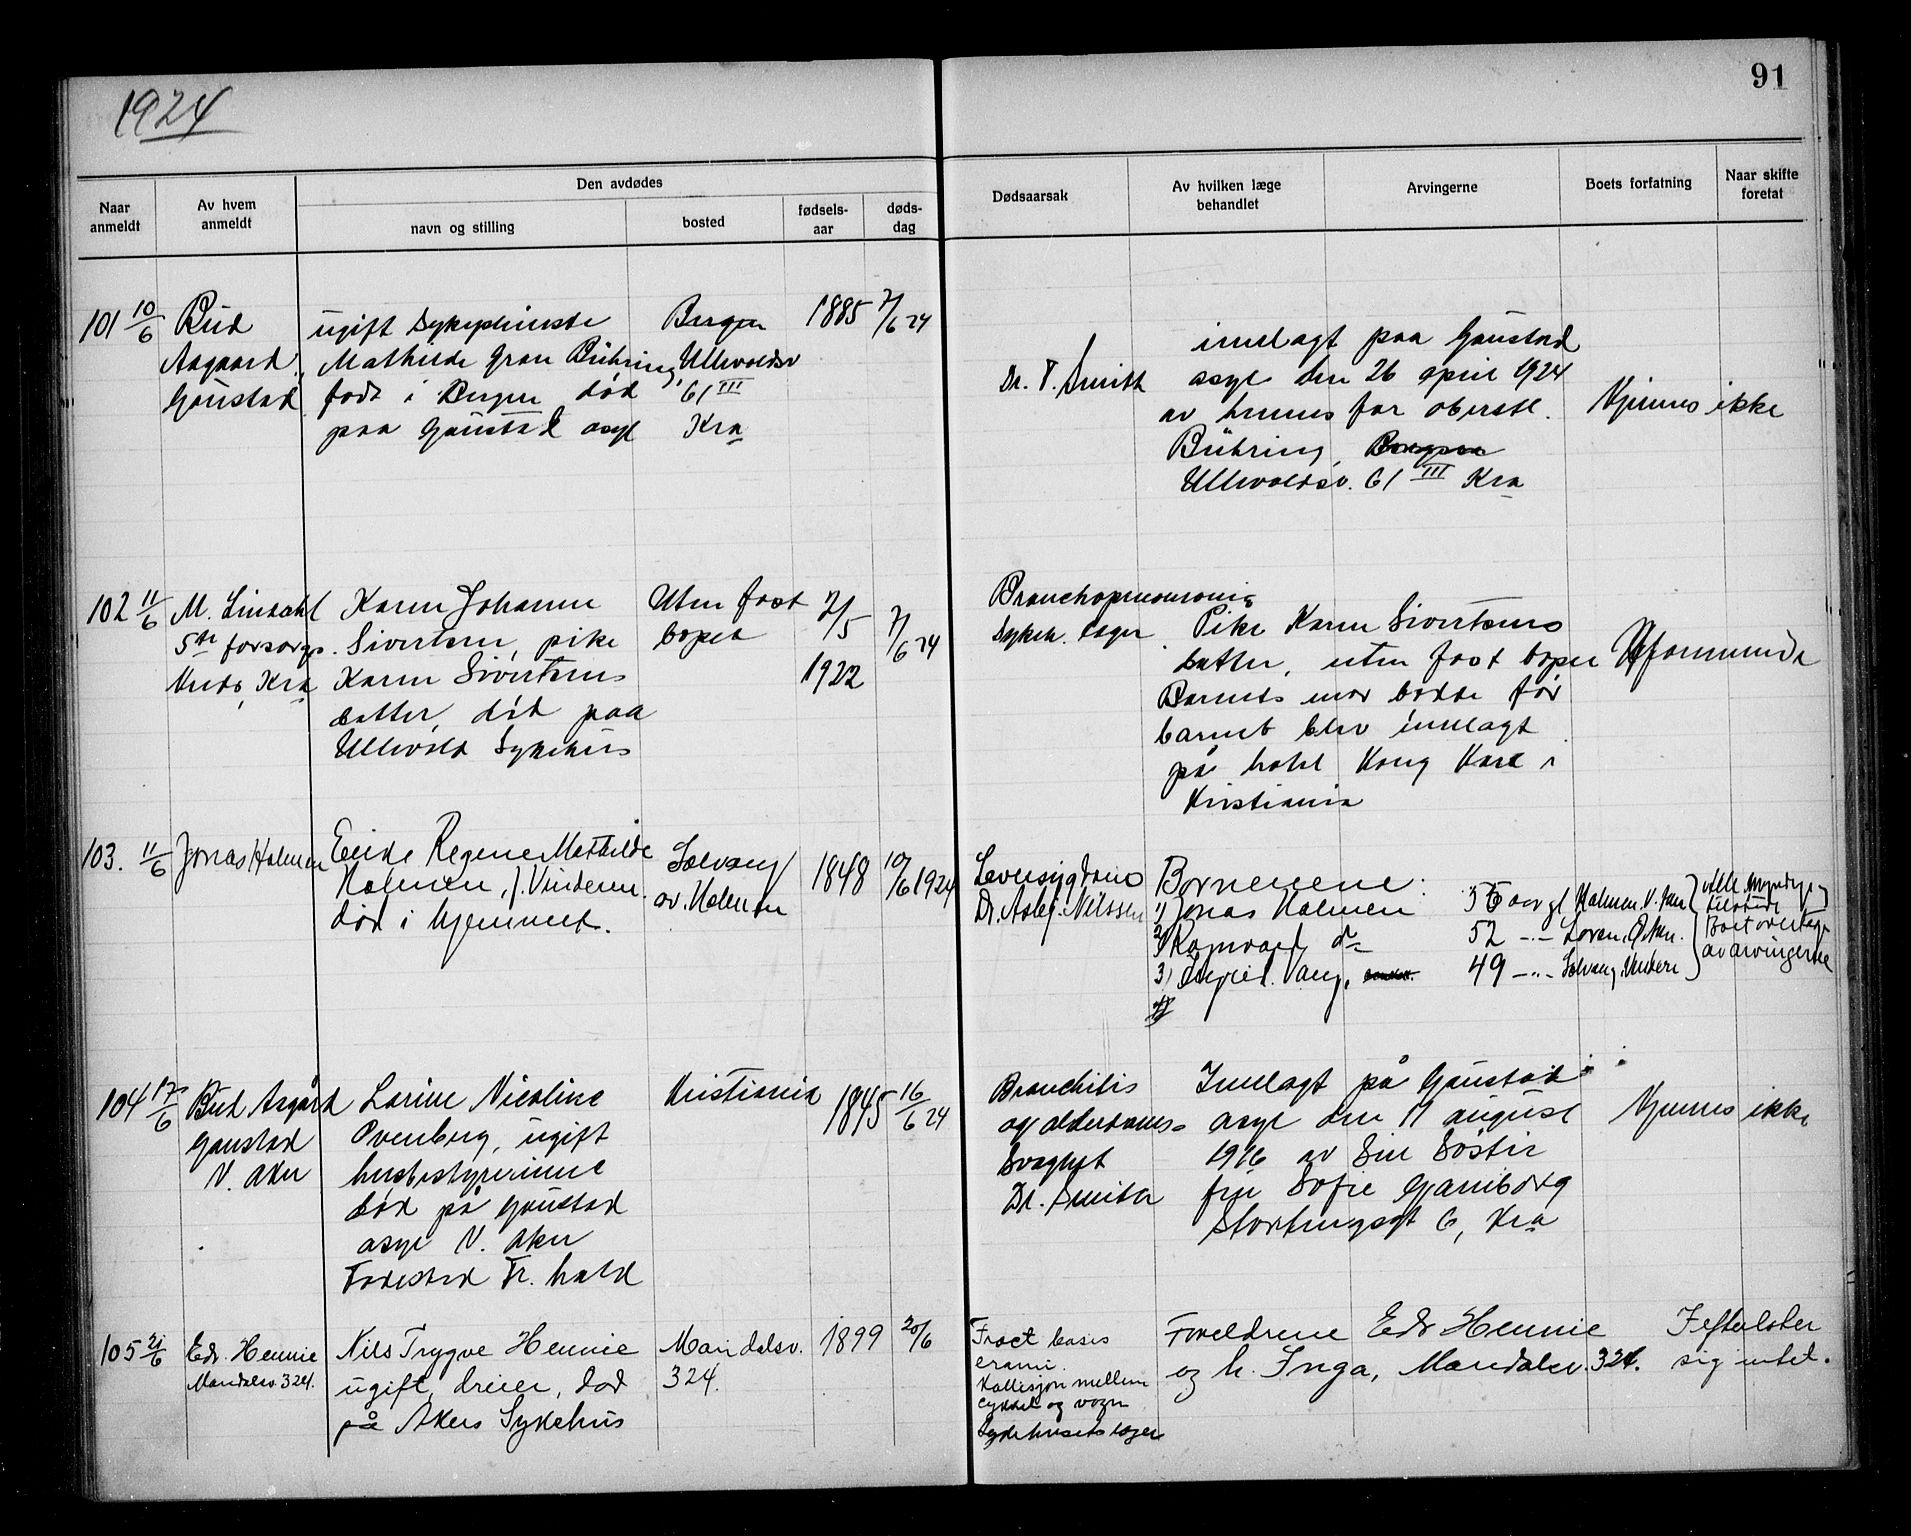 1924
91
Naar anmeldt
Av hvem anmeldt
Den avdødes
navn og stilling
bosted
fødsels-aar
døds-dag
Dødsaarsak
Av hvilken læge behandlet
Arvingerne
Boets forfatning
Naar skifte foretat
101 10/6
Bud
Aagaard
Gaustad
ugift sykepleierske
Mathilde Gran Bühring,
født i Bergen død
paa Gaustad asyl
Bergen
Ullevoldsv
61 III
Kra
1885
7/6 24
Dr. T. Smith
innlagt paa Gaustad
asyl den 26 april 1924
av hennes far oberstl.
Bühring, Bergen
Ullevoldsv. 61 III Kra
Kjennes ikke
102 11/6
M. Lindahl
5te forsorgs
Kreds, Kra
Karen Johanne
Sivertsen, pike
Karen Sivertsens
datter, død paa
Ullevold Sykehus
Uten fast
bopel
7/5
1922
7/6 24
Bronchopneumoni
Sykeh. læger
Pike Karen Sivertsens
datter, uten fast bopel
Barnets mor bodde før
barnet blev innlagt
på hotel Kong Karl i
Kristiania
Uformuende
103. 11/6
Jonas Holmen
Enke Regine Mathilde
Holmen, f. Vinderen.
død i hjemmet.
Solvang
av. Holmen
1848
10/6 1924
Dr. Asbj. Nilssen
Børnenene:
1) Jonas Holmen 56 aar gl Holmen V. Aker
2) Ragnvald do 52 -"- Løren, Ø. Aker.
3) Ingrid Vang, 49 -"- Solvang, Vinderen
Alle myndige
tilstede
Boet overtages
av arvingerne
104 17/6
Bud Asgård
Gaustad
V. Aker
Larine Nicoline
Ovenberg, ugift
husbestyrerinne
død på Gaustad
asyl V. Aker
Fødested Fr. hald
Kristiania
1845
16/6 24
Bronchitis
og alderdoms-
svaghet
Dr. Smith
Innlagt på Gaustad
asyl den 11 august
1916 av sin søster
fru Sofie Gjamborg
Stortingsgt 6, Kra
Kjennes ikke
105 21/6
Edv. Hennie
Maridalsv. 324.
Nils Trygve Hennie
ugift, dreier, død
på Akers Sykehus
Maridalsv.
324.
1899
20/6
Fract basis
cranii.
Kollisjon mellem
cykkel og vogn
Sykehusets læger
Foreldrene Edv Hennie
og h. Inga, Maridalsv. 324.
Efterlater
sig intet.